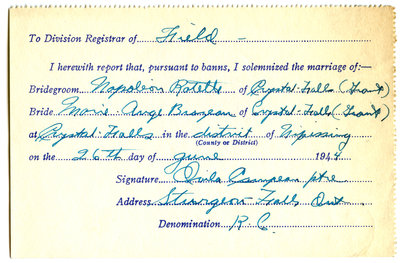 To Division Registrar of Field -
I herewith report that, pursuant to banns, I solemnized the marriage of:—
Bridegroom Napoleon of Crystal-Falls (Grant)
Bride Marie-Ange of Crystal-Falls (Grant)
at Crystal-Falls in the district of Nipissing
(County or District)
on the 26th day of June 1944.
Signature ptre
Address Sturgeon Falls Ont
Denomination R.C.